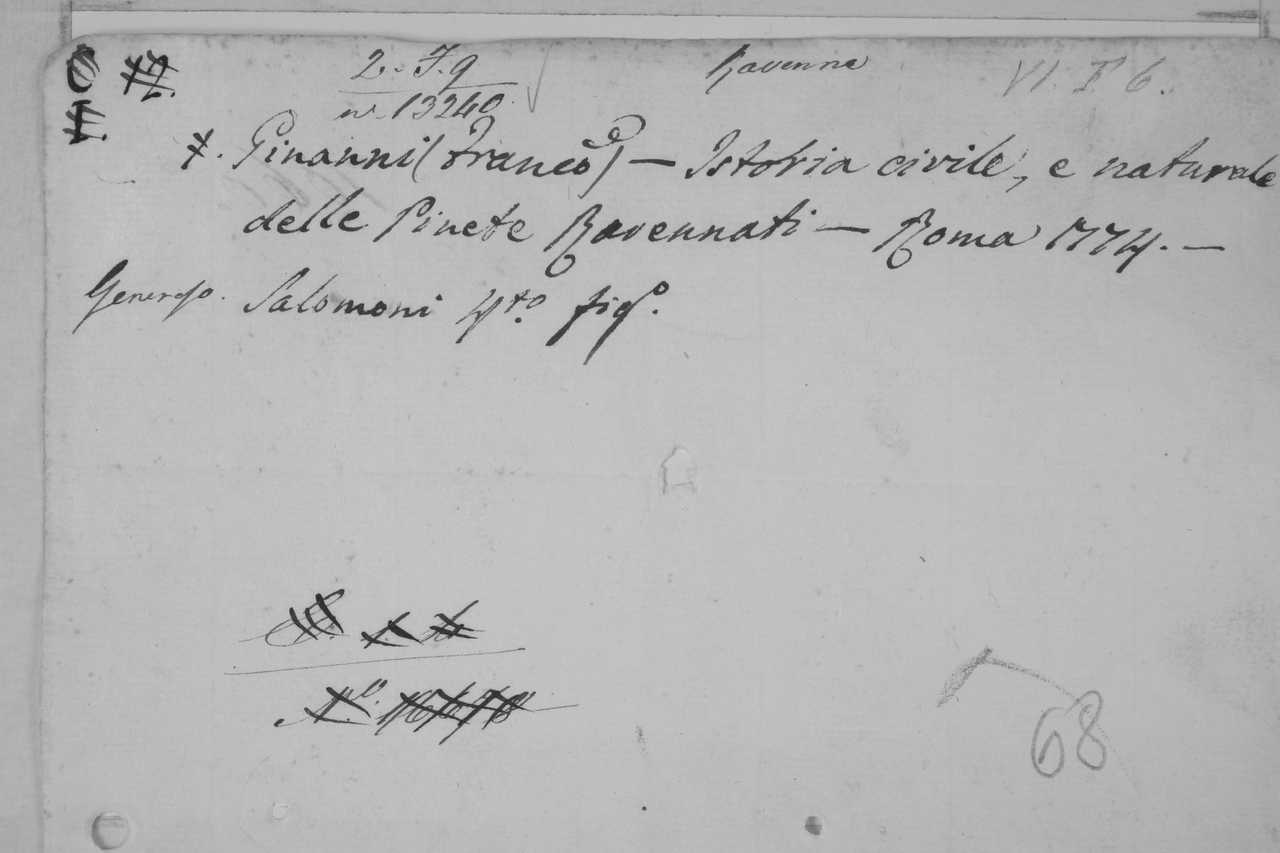 2. F. 9
n. 13240.
Ravenna
VI. F 6.
+. Ginanni (Franc̃o) — Istoria civile, e naturale
delle Pinete Ravennati — Roma 1774. —
Generoso. Salomoni 4to. figo.
68